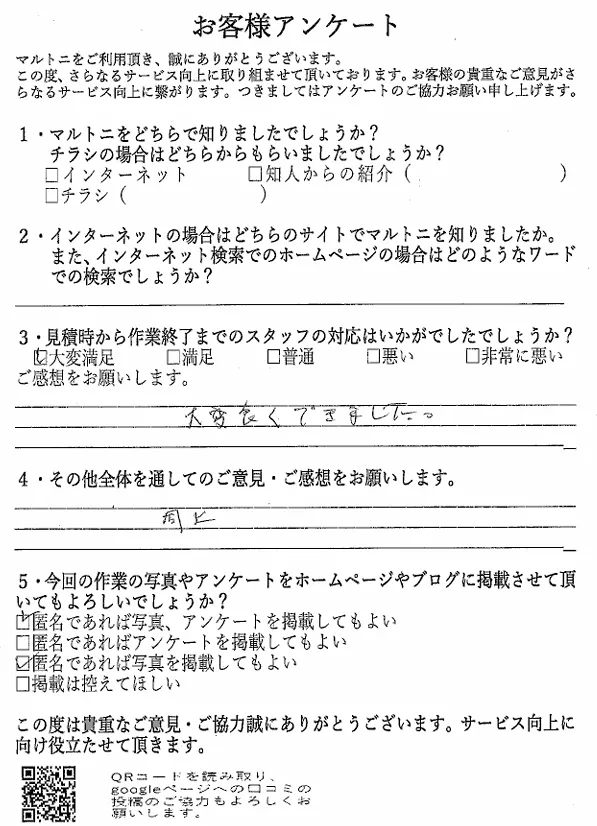 お客様アンケート
マルトニをご利用頂き、誠にありがとうございます。
この度、さらなるサービス向上に取り組ませて頂いております。お客様の貴重なご意見がさ
らなるサービス向上に繋がります。つきましてはアンケートのご協力お願い申し上げます。
1・マルトニをどちらで知りましたでしょうか?
チラシの場合はどちらからもらいましたでしょうか?
□インターネット □知人からの紹介( )
□チラシ( )
2・インターネットの場合はどちらのサイトでマルトニを知りましたか。
また、インターネット検索でのホームページの場合はどのようなワード
での検索でしょうか?
3・見積時から作業終了までのスタッフの対応はいかがでしたでしょうか?
☑大変満足 □満足 □普通 □悪い □非常に悪い
ご感想をお願いします。
大変良くできました。
4・その他全体を通してのご意見・ご感想をお願いします。
同上
5・今回の作業の写真やアンケートをホームページやブログに掲載させて頂
いてもよろしいでしょうか?
☑匿名であれば写真、アンケートを掲載してもよい
□匿名であればアンケートを掲載してもよい
☑匿名であれば写真を掲載してもよい
□掲載は控えてほしい
この度は貴重なご意見・ご協力誠にありがとうございます。サービス向上に
向け役立たせて頂きます。
QRコードを読み取り、
googleページへの口コミの
投稿のご協力もよろしくお
願いします。